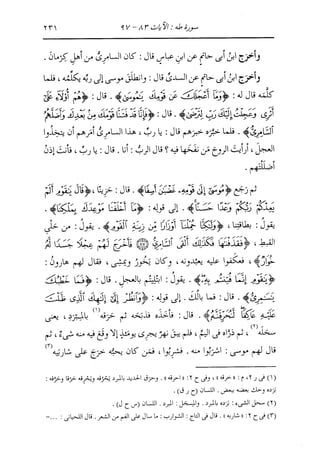 سورة طه : الآيات ٨٣ - ٩٧
٢٣١
وأخرج ابنُ أبى حاتمٍ عن ابنِ عباسٍ قال : كان السامرىُّ من أهلِ كِرْمانَ .
وأخرج ابنُ أبى حاتمٍ عن السدىِّ قال : وانطلَق موسى إلى ربِّه يكلِّمُه ، فلما
كلَّمه قال له : ﴿ وَمَا أَعْجَلَكَ عَن قَوْمِكَ يَـٰمُوسَىٰ ﴾ . قال : ﴿ هُمْ أُوْلَآءِ عَلَىٰٓ
أَثَرِى وَعَجِلْتُ إِلَيْكَ رَبِّ لِتَرْضَىٰ ﴾ . قال : ﴿ فَإِنَّا قَدْ فَتَنَّا قَوْمَكَ مِنۢ بَعْدِكَ وَأَضَلَّهُمُ
ٱلسَّامِرِىُّ ﴾ . فلما خبَّره خبرَهم قال : يا ربِّ ، هذا السامرىُّ أمَرهم أن يتخِذوا
العجلَ ، أرأيتَ الروحَ مَن نفَخها فيه ؟ قال الربُّ : أنا . قال : يا ربِّ ، فأنتَ إذن
أضلَلتَهم .
ثم رجَع ﴿ مُوسَىٰٓ إِلَىٰ قَوْمِهِۦ غَضْبَـٰنَ أَسِفًا ﴾ . قال : حزينًا ، ﴿ قَالَ يَـٰقَوْمِ أَلَمْ
يَعِدْكُمْ رَبُّكُمْ وَعْدًا حَسَنًا ﴾ . إلى قولِه : ﴿ مَآ أَخْلَفْنَا مَوْعِدَكَ بِمَلْكِنَا ﴾ .
يقولُ : بطاقتِنا ، ﴿ وَلَـٰكِنَّا حُمِّلْنَآ أَوْزَارًا مِّن زِينَةِ ٱلْقَوْمِ ﴾ . يقولُ : من حلىِ
القبطِ ، ﴿ فَقَذَفْنَـٰهَا فَكَذَٰلِكَ أَلْقَى ٱلسَّامِرِىُّ ۝ فَأَخْرَجَ لَهُمْ عِجْلًا جَسَدًا لَّهُۥ
خُوَارٌ ﴾ ، فعكَفوا عليه يعبُدونه ، وكان يخورُ ويمشِى ، فقال لهم هارونُ :
﴿ يَـٰقَوْمِ إِنَّمَا فُتِنتُم بِهِۦ ﴾ . يقولُ : ابتُليتم بالعجلِ . قال : ﴿ فَمَا خَطْبُكَ
يَـٰسَـٰمِرِىُّ ﴾ . قال : فما بالُك . إلى قولِه : ﴿ وَٱنظُرْ إِلَىٰٓ إِلَـٰهِكَ ٱلَّذِى ظَلْتَ
عَلَيْهِ عَاكِفًا لَّنُحَرِّقَنَّهُۥ ﴾ . قال : فأخَذه فذبَحه ثم حرَقه (١) بالمِبْرَدِ ، يعنى
سَحَلَه (٢) ، ثم ذَرَّاه فى اليمِّ ، فلم يبقَ نهرٌ يجرى يومَئذٍ إلا وقَع فيه منه شىءٌ ، ثم
قال لهم موسى : اشرَبوا منه . فشرِبوا ، فمن كان يحبُّه خرَج على شاربَيه (٣)
(١) فى ر ٢ ، م : « حرفه » ، وفى ح ٢ : « احرقه » . وحرَق الحديد بالمبرد يَحْرُقه ويَحْرِقه حرْقا وحرَّقه :
برده وحك بعضه ببعض . اللسان (ح ر ق) .
(٢) سحل الشىء : برَده بالمبرد . والمِسْحل : المبرد . اللسان (س ح ل) .
(٣) فى ح ٢ : « شاربه » . قال فى التاج : الشوارب : ما سال على الفم من الشعر . قال اللحيانى : ... =